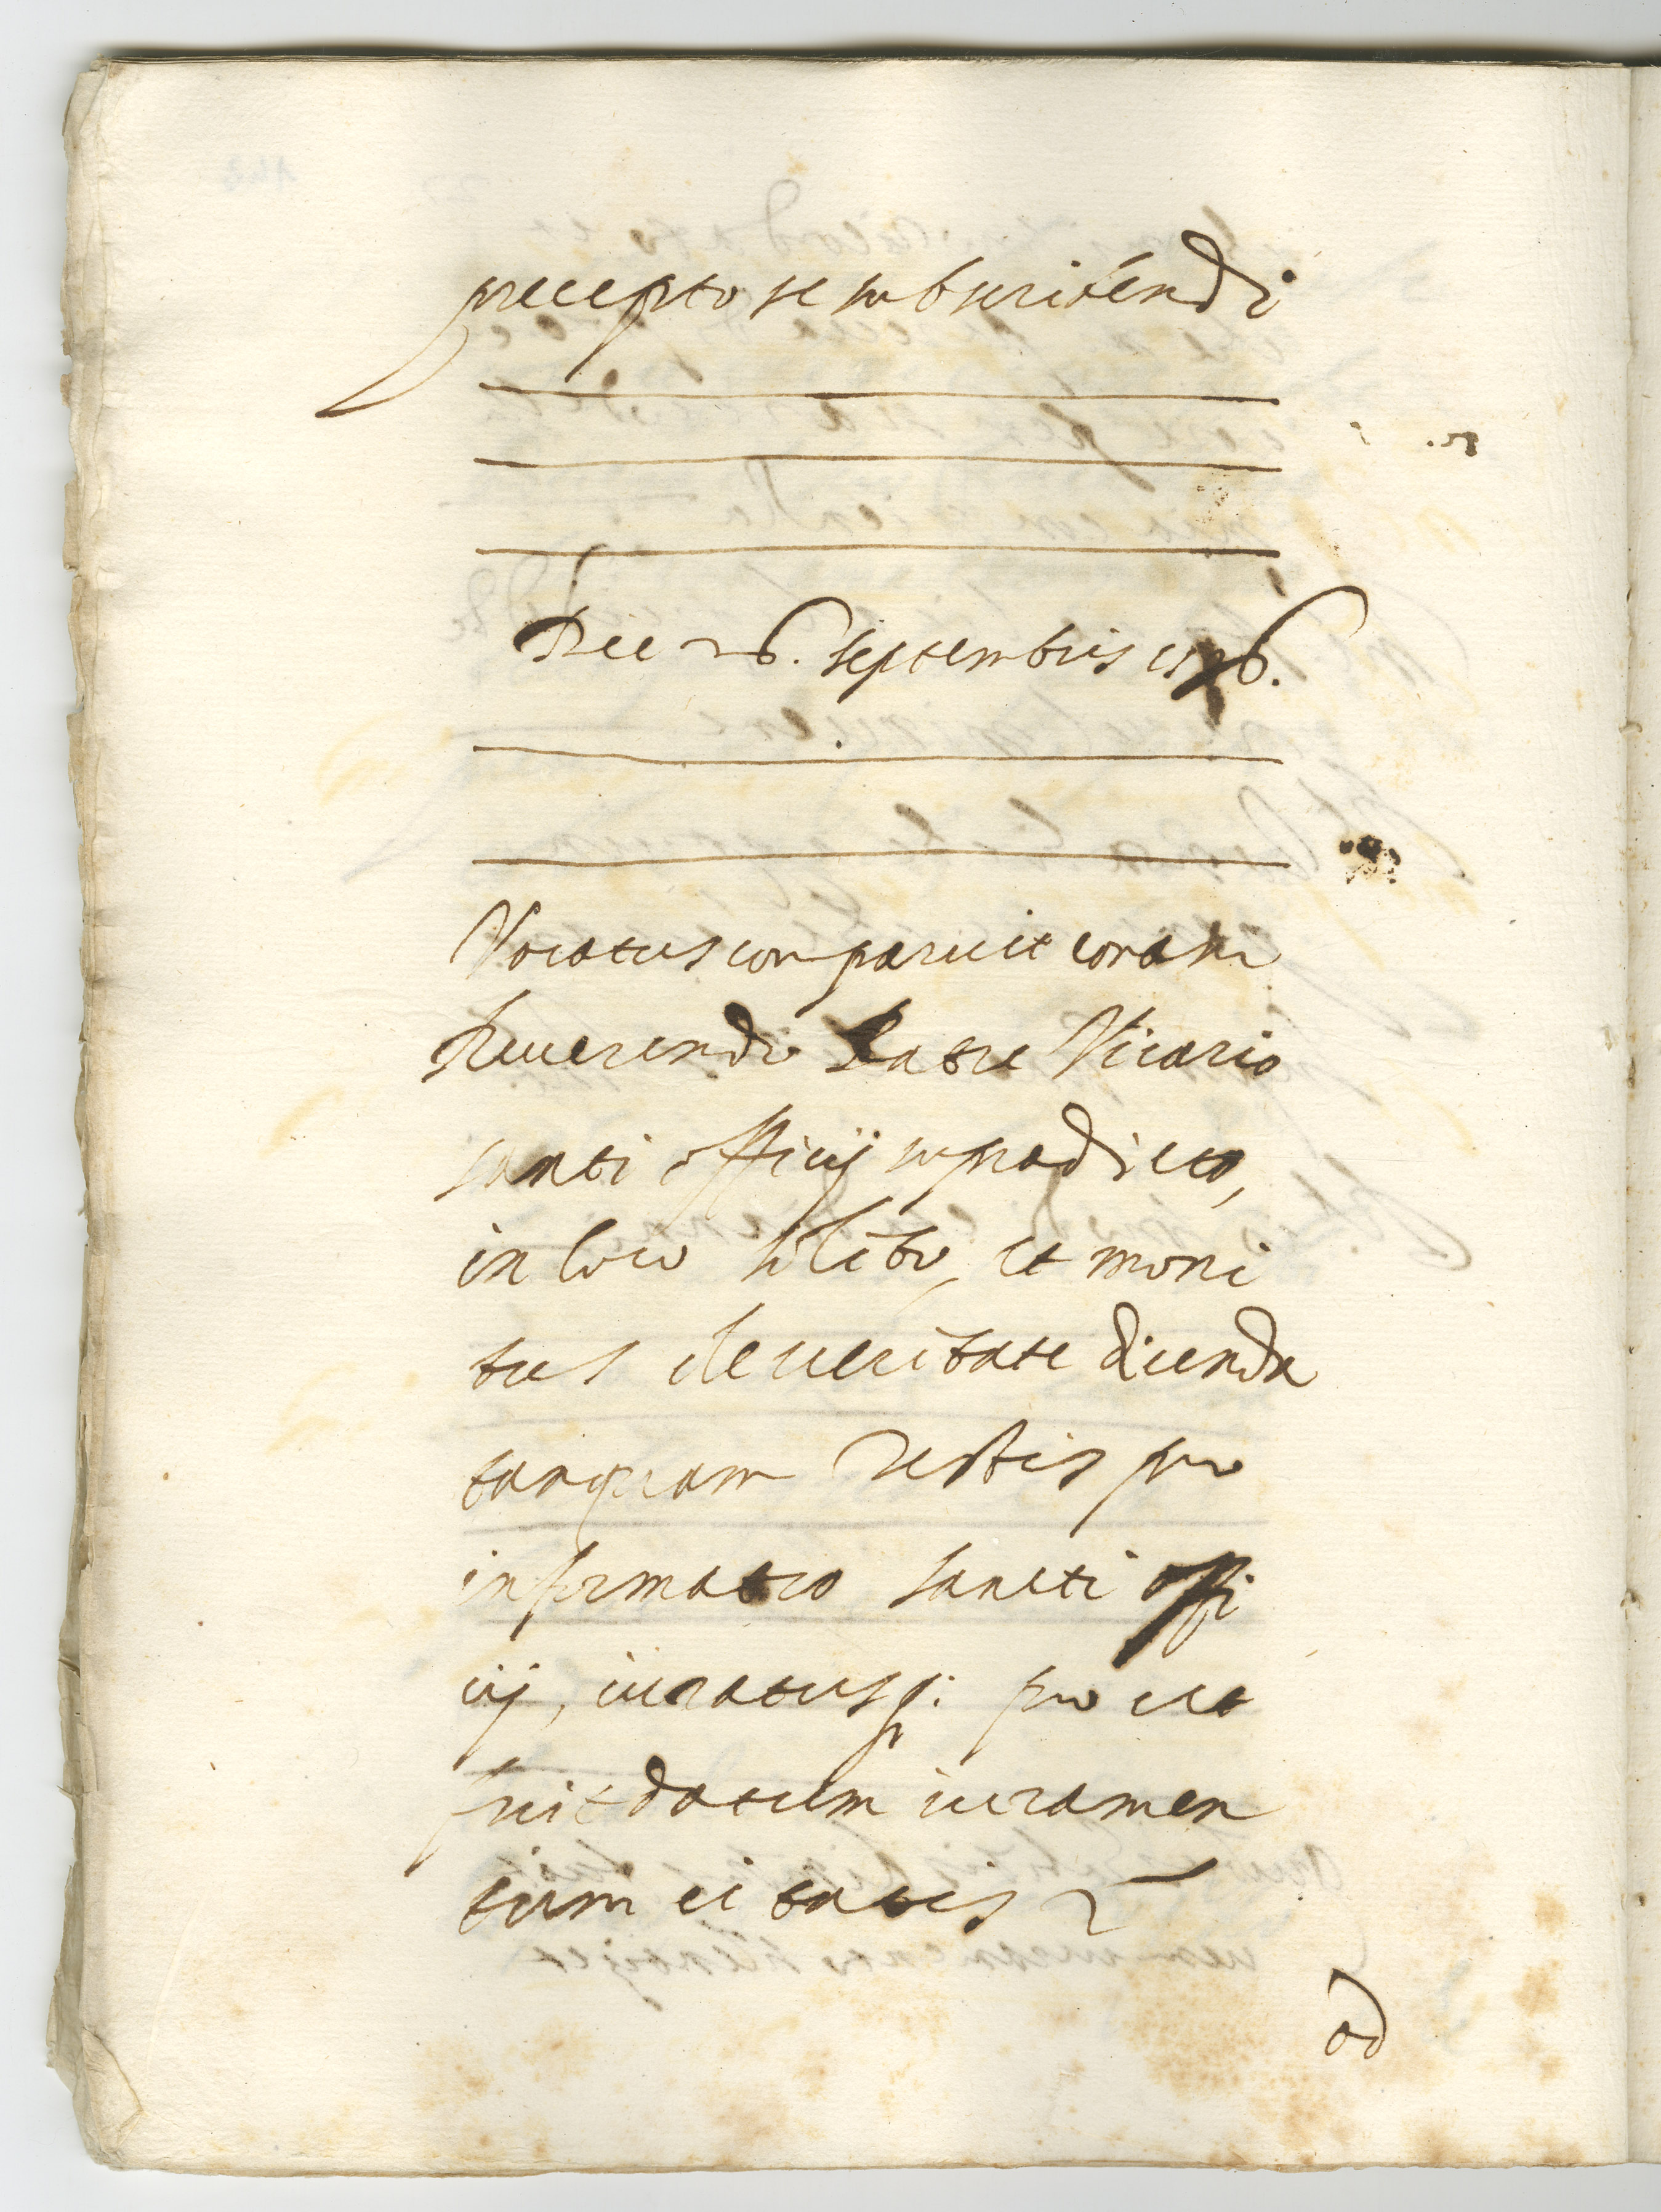 precepto se subscribendi
Die 26. septembris
Vocatus comparuit coram
Reuerendo Patre Vicario
sancti officij supradicto,
in loco solito, et moni
tus de ueritate dicenda
tanquam testis pro
informatio sancti offi
cij, iuratusq: pro ut
fuit datum iuramen
tum ei tactis
ad